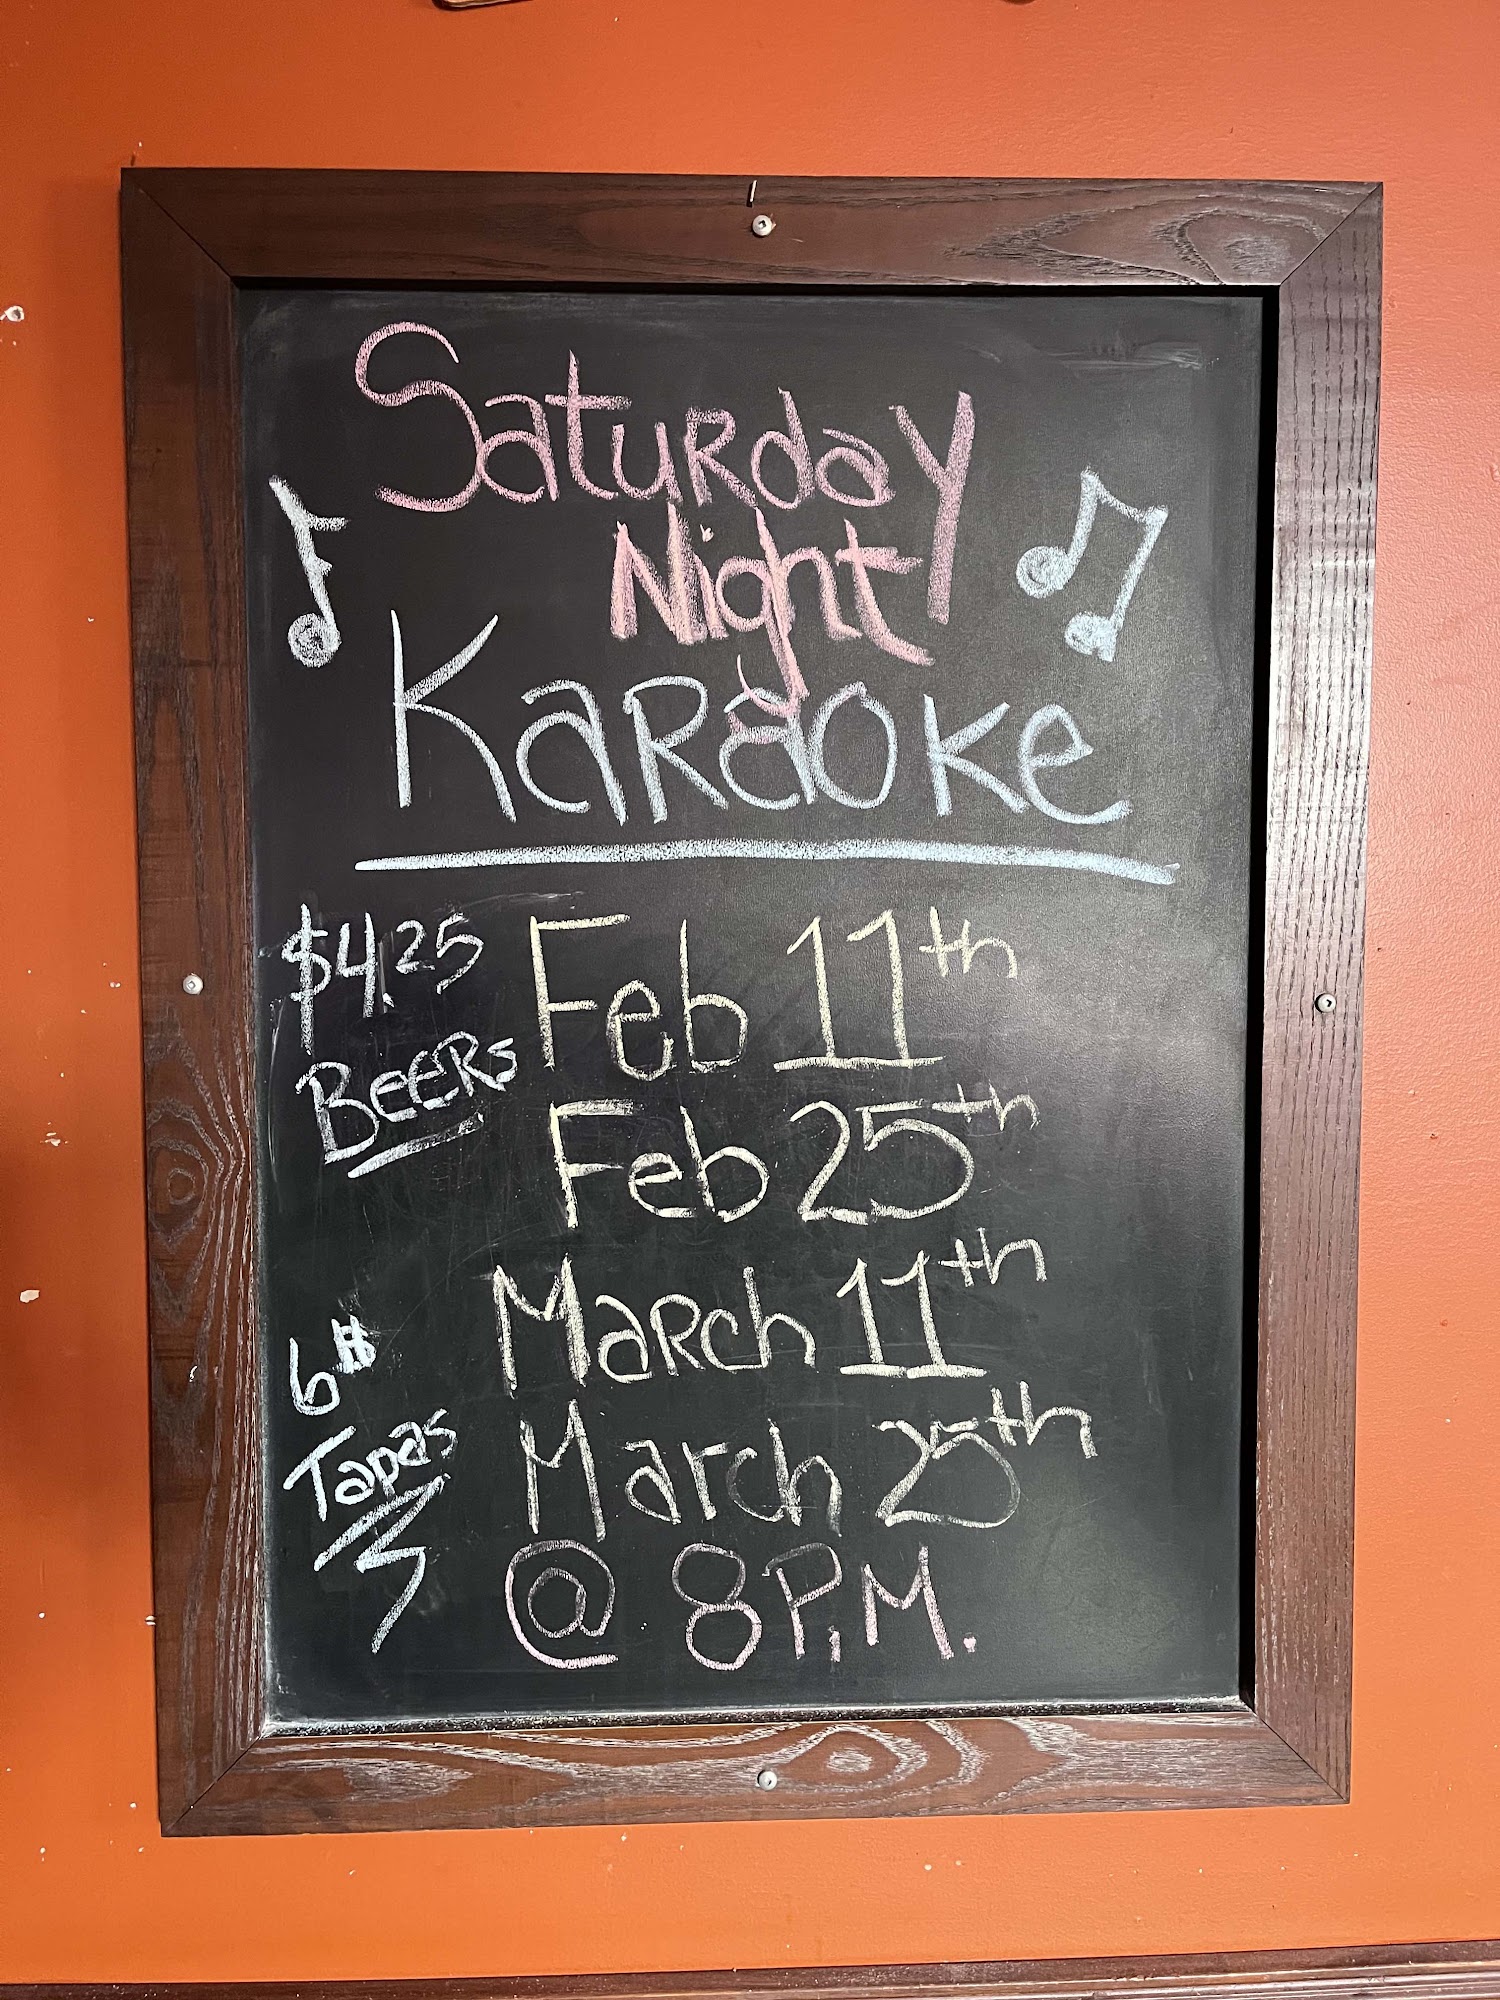 Saturday
Night
Karaoke
$4.25
Beers
Feb 11th
Feb 25th
March 11th
March 25th
@ 8P.M.
6#
Tapas